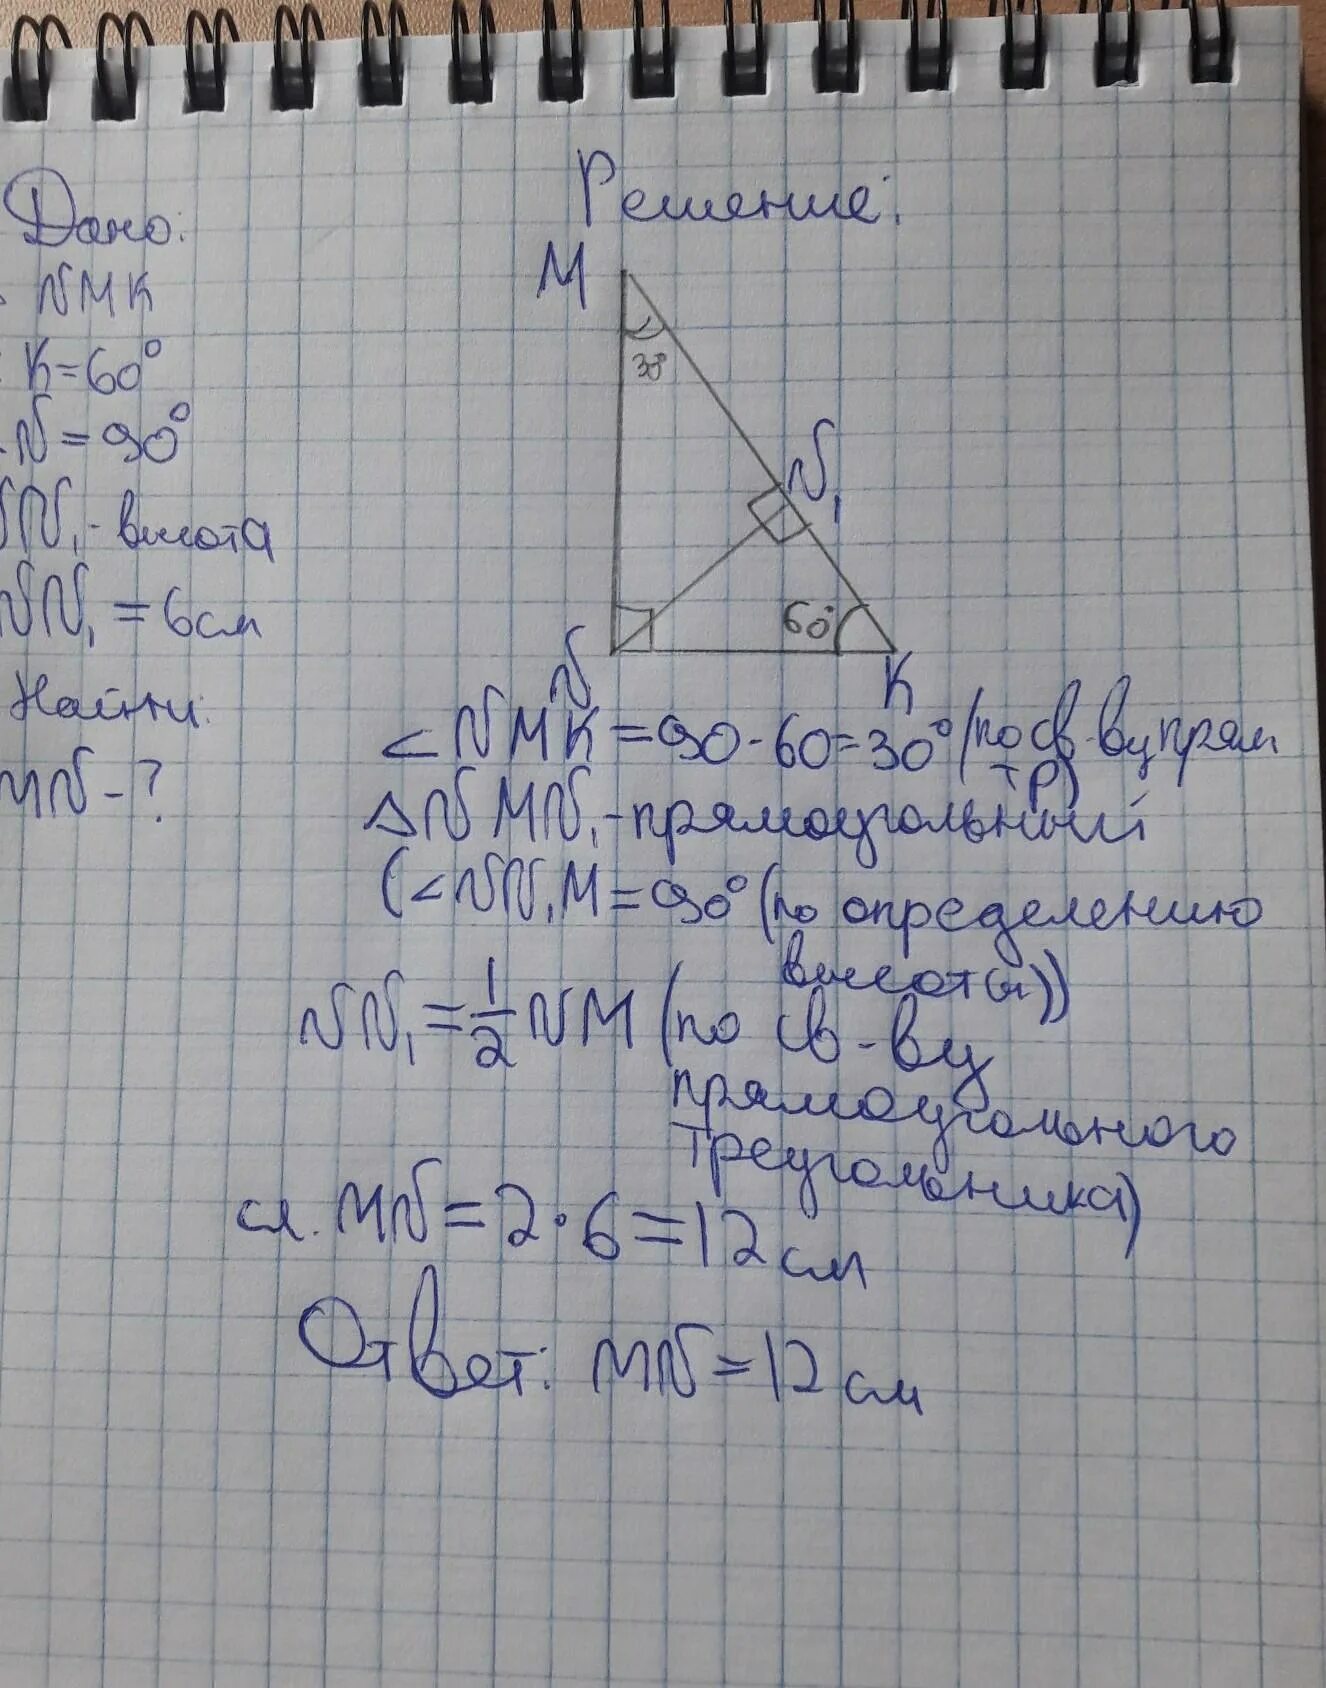 Дано:
NMK
K=60°
N=90°
NN₁-высота
NN₁=6см
Найти:
MN-?
Решение:
M
30°
N₁
60°
N
K
<NMK=90-60=30° (по св-ву прям
тр)
△NMN₁-прямоугольный
(<NN₁M=90° (по определению
высоты))
NN₁=1/2NM (по св-ву
прямоугольного
треугольника)
сл. MN=2·6=12см
Ответ: MN=12см